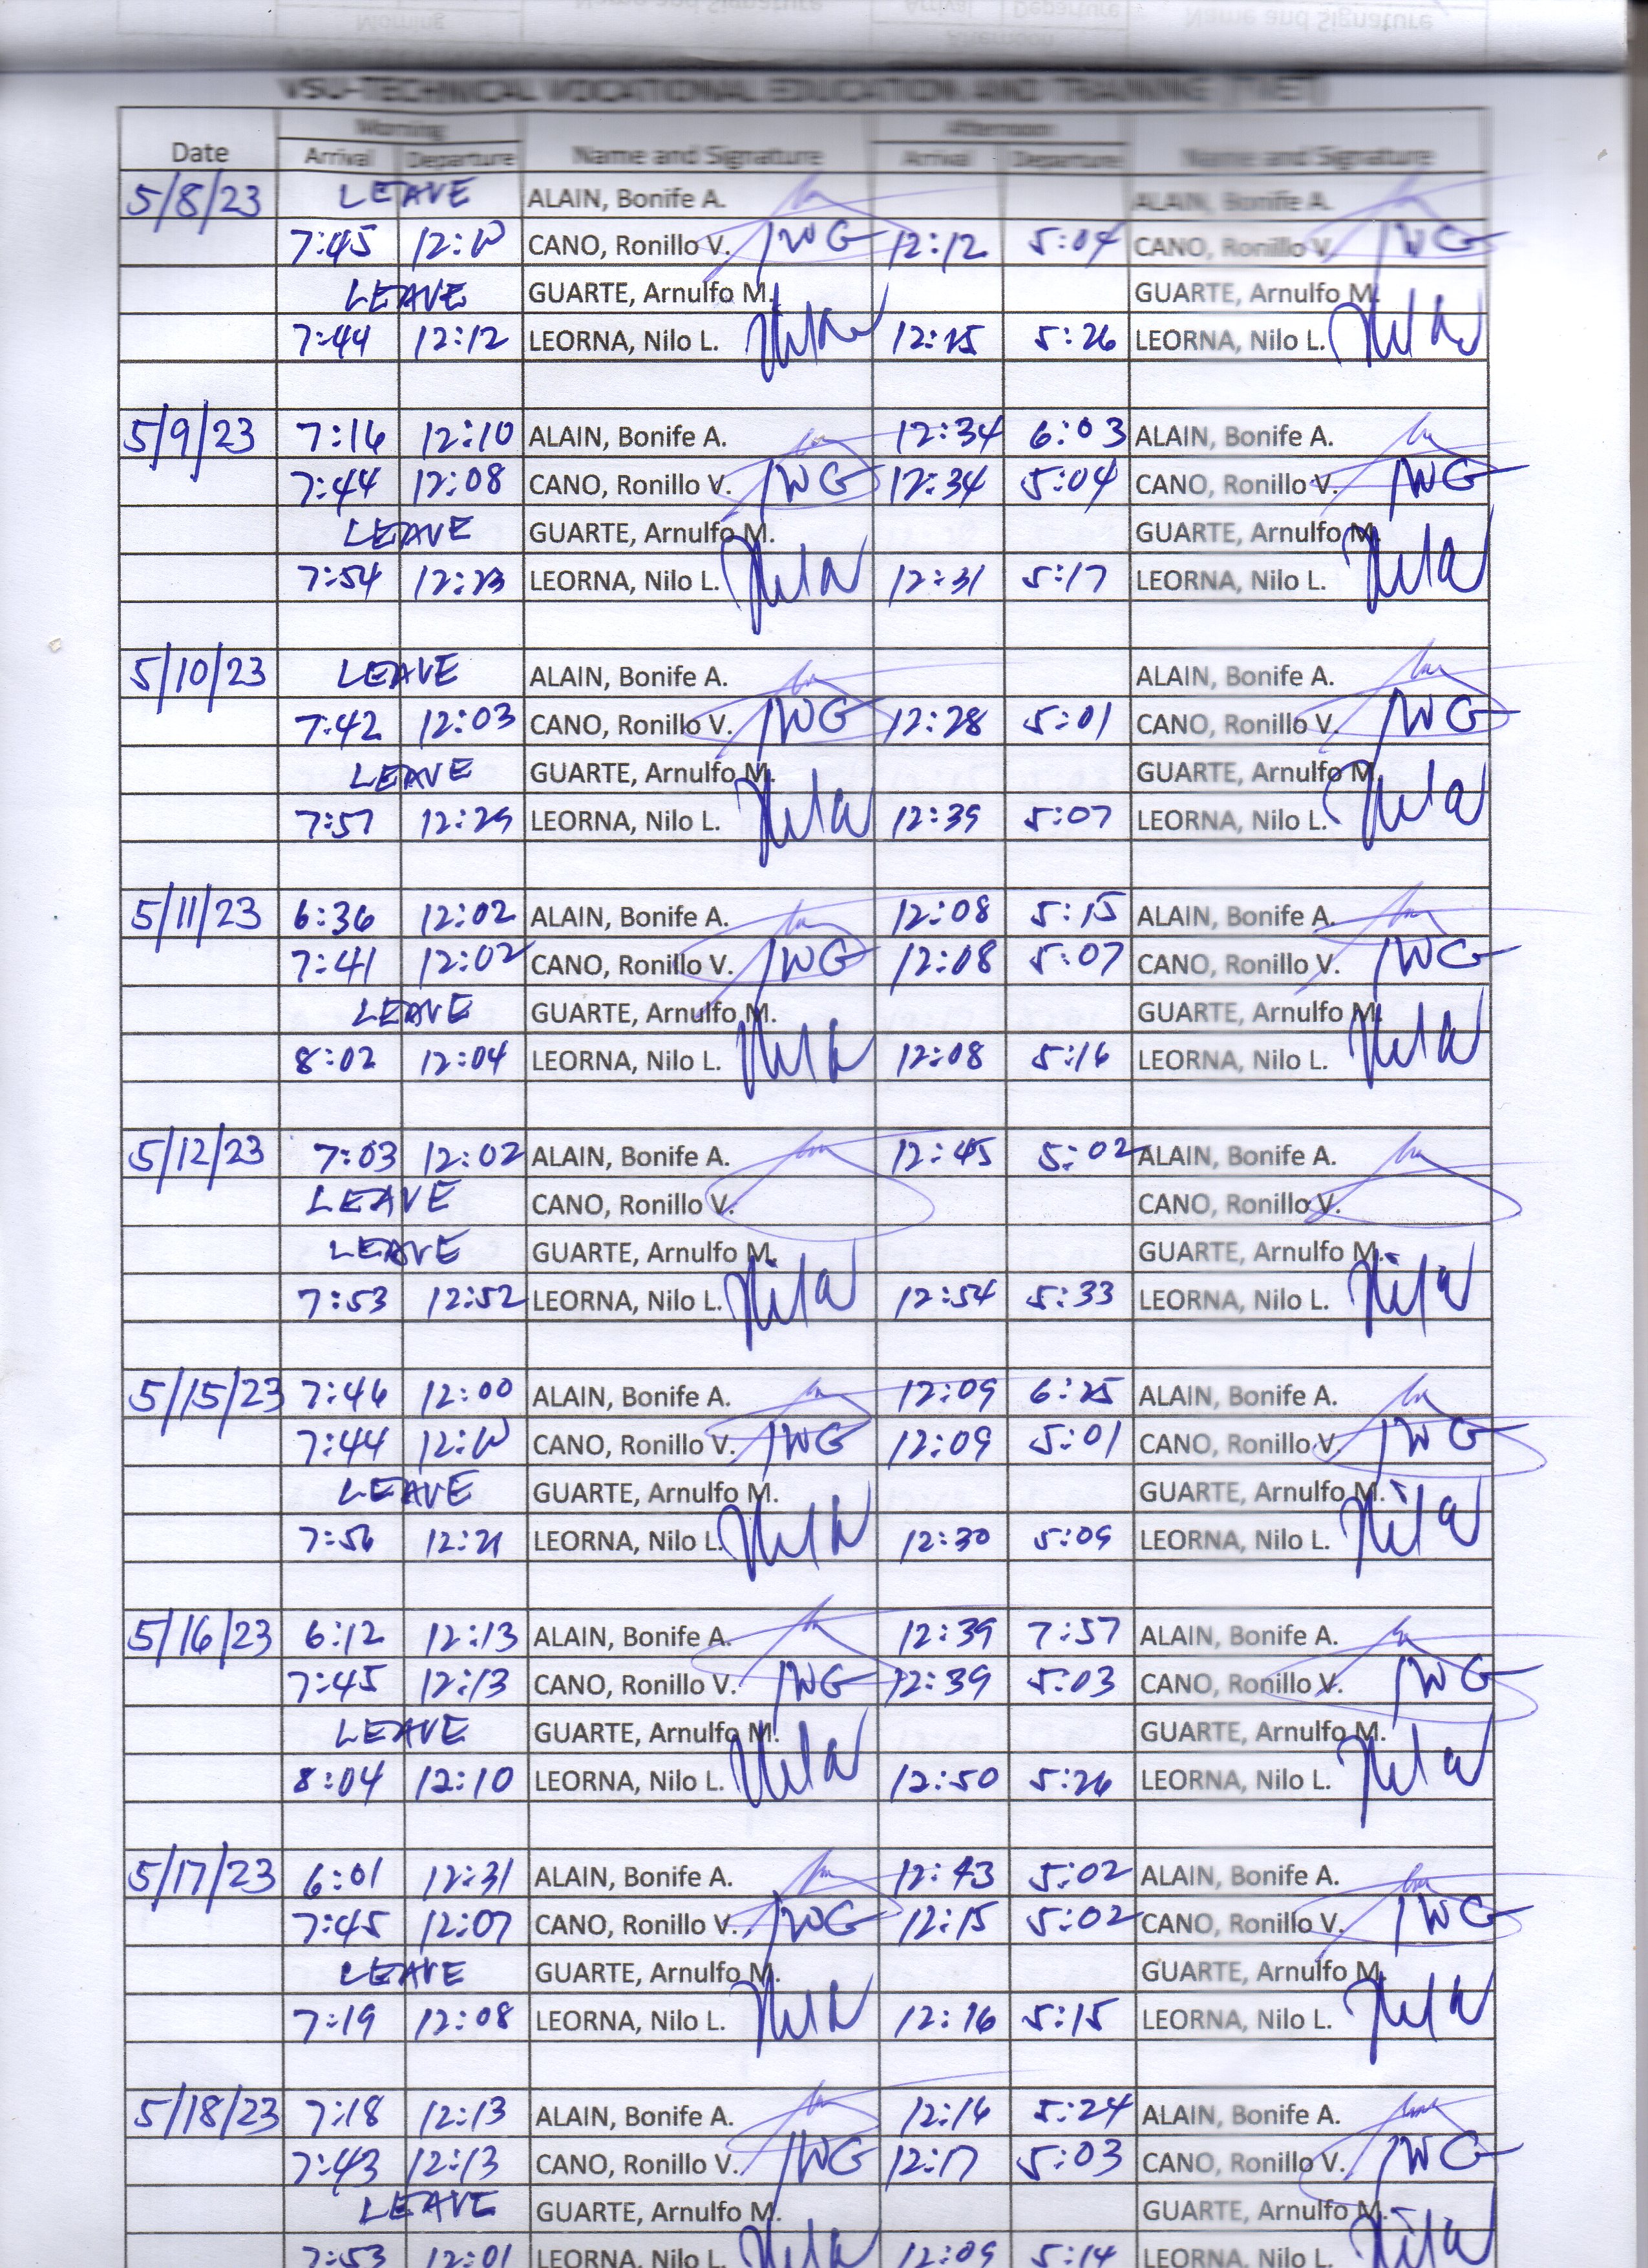 VSU-TECHNICAL VOCATIONAL EDUCATION AND TRAINING (TVET)
Morning Afternoon
Date Arrival Departure Name and Signature Arrival Departure Name and Signature
5/8/23 LEAVE ALAIN, Bonife A. ALAIN, Bonife A.
7:45 12:10 CANO, Ronillo V. 12:12 5:04 CANO, Ronillo V.
LEAVE GUARTE, Arnulfo M. GUARTE, Arnulfo M.
7:44 12:12 LEORNA, Nilo L. 12:15 5:26 LEORNA, Nilo L.
5/9/23 7:16 12:10 ALAIN, Bonife A. 12:34 6:03 ALAIN, Bonife A.
7:44 12:08 CANO, Ronillo V. 12:34 5:04 CANO, Ronillo V.
LEAVE GUARTE, Arnulfo M. GUARTE, Arnulfo M.
7:54 12:23 LEORNA, Nilo L. 12:31 5:17 LEORNA, Nilo L.
5/10/23 LEAVE ALAIN, Bonife A. ALAIN, Bonife A.
7:42 12:03 CANO, Ronillo V. 12:28 5:01 CANO, Ronillo V.
LEAVE GUARTE, Arnulfo M. GUARTE, Arnulfo M.
7:57 12:29 LEORNA, Nilo L. 12:39 5:07 LEORNA, Nilo L.
5/11/23 6:36 12:02 ALAIN, Bonife A. 12:08 5:15 ALAIN, Bonife A.
7:41 12:02 CANO, Ronillo V. 12:08 5:07 CANO, Ronillo V.
LEAVE GUARTE, Arnulfo M. GUARTE, Arnulfo M.
8:02 12:04 LEORNA, Nilo L. 12:08 5:16 LEORNA, Nilo L.
5/12/23 7:03 12:02 ALAIN, Bonife A. 12:45 5:02 ALAIN, Bonife A.
LEAVE CANO, Ronillo V. CANO, Ronillo V.
LEAVE GUARTE, Arnulfo M. GUARTE, Arnulfo M.
7:53 12:52 LEORNA, Nilo L. 12:54 5:33 LEORNA, Nilo L.
5/15/23 7:46 12:00 ALAIN, Bonife A. 12:09 6:25 ALAIN, Bonife A.
7:44 12:10 CANO, Ronillo V. 12:09 5:01 CANO, Ronillo V.
LEAVE GUARTE, Arnulfo M. GUARTE, Arnulfo M.
7:56 12:21 LEORNA, Nilo L. 12:30 5:09 LEORNA, Nilo L.
5/16/23 6:12 12:13 ALAIN, Bonife A. 12:39 7:57 ALAIN, Bonife A.
7:45 12:13 CANO, Ronillo V. 12:39 5:03 CANO, Ronillo V.
LEAVE GUARTE, Arnulfo M. GUARTE, Arnulfo M.
8:04 12:10 LEORNA, Nilo L. 12:50 5:26 LEORNA, Nilo L.
5/17/23 6:01 12:31 ALAIN, Bonife A. 12:43 5:02 ALAIN, Bonife A.
7:45 12:07 CANO, Ronillo V. 12:15 5:02 CANO, Ronillo V.
LEAVE GUARTE, Arnulfo M. GUARTE, Arnulfo M.
7:19 12:08 LEORNA, Nilo L. 12:16 5:15 LEORNA, Nilo L.
5/18/23 7:18 12:13 ALAIN, Bonife A. 12:16 5:24 ALAIN, Bonife A.
7:43 12:13 CANO, Ronillo V. 12:17 5:03 CANO, Ronillo V.
LEAVE GUARTE, Arnulfo M. GUARTE, Arnulfo M.
7:53 12:01 LEORNA, Nilo L. 12:09 5:14 LEORNA, Nilo L.